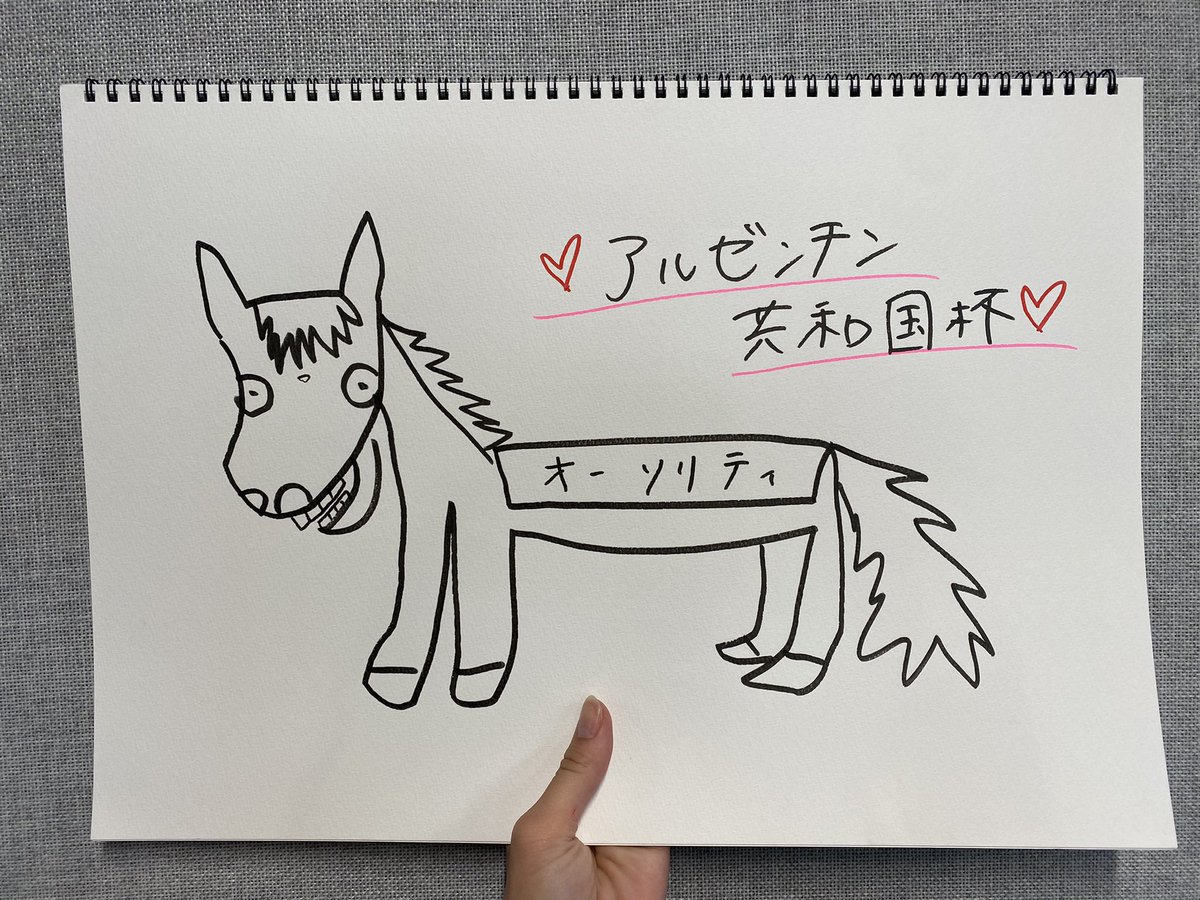 アルゼンチン
共和国杯
オーソリティ